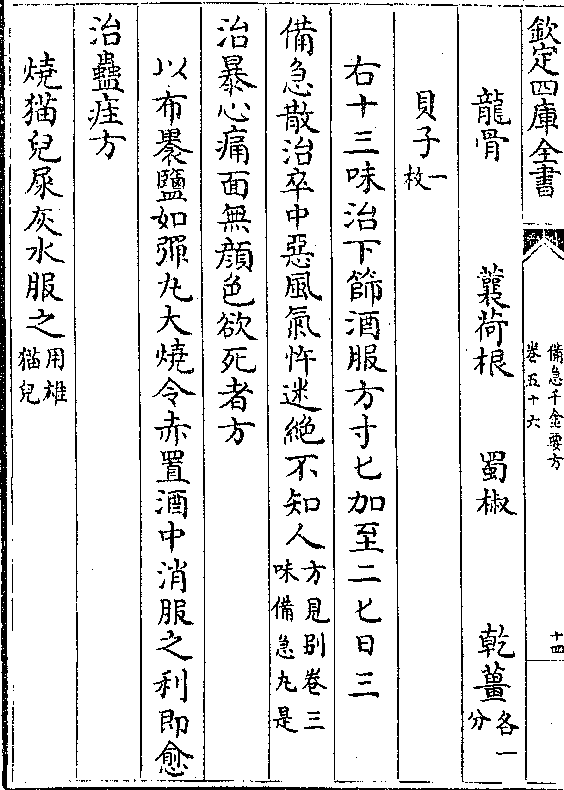 欽定四庫全書
備急千金要方
卷五十六
十四
龍骨　蘘荷根　蜀椒　乾薑各一分
貝子一枚
右十三味治下篩酒服方寸匕加至二匕日三
備急散治卒中惡風氣忤迷絶不知人方見别卷三味備急丸是
治暴心痛面無顔色欲死者方
以布裹鹽如彈丸大燒令赤置酒中消服之利即愈
治蠱疰方
燒猫兒屎灰水服之用雄猫兒